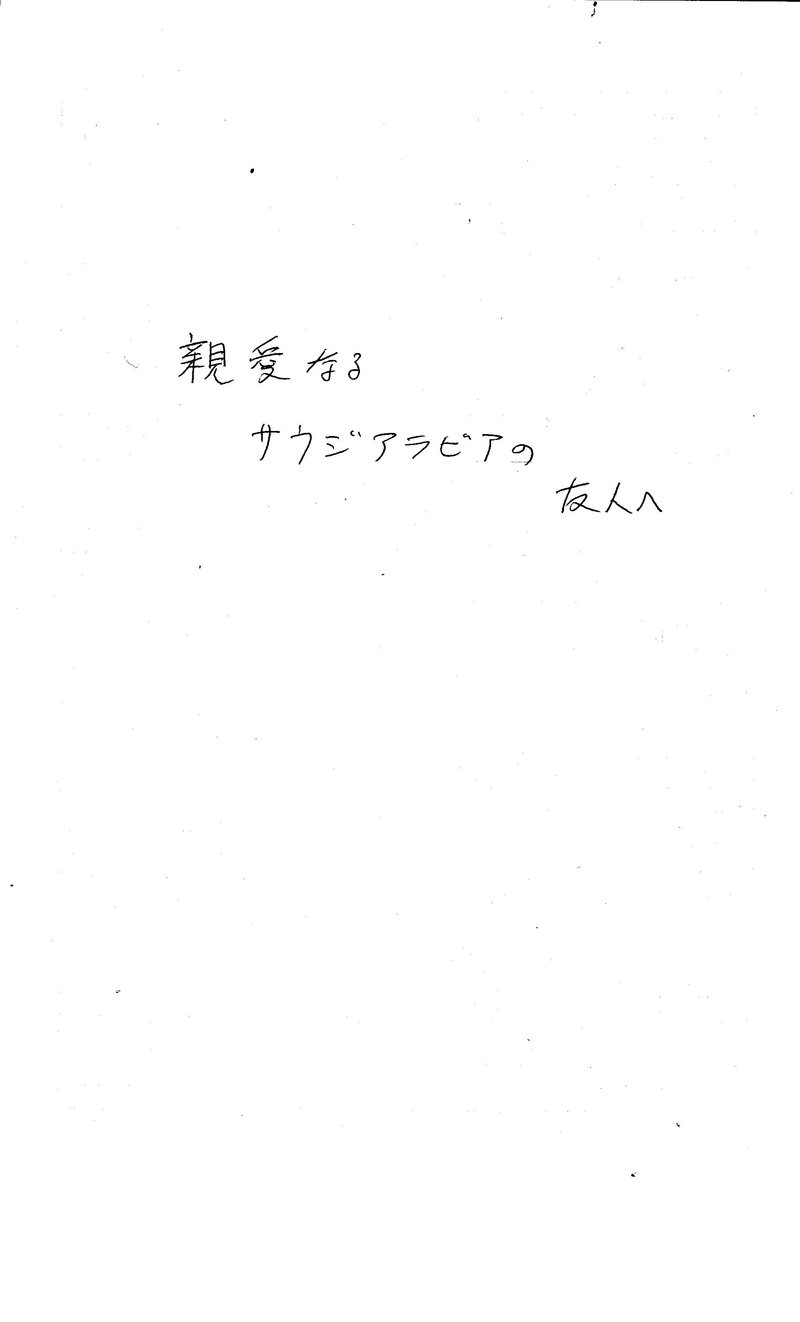 親愛なる
サウジアラビアの
友人へ